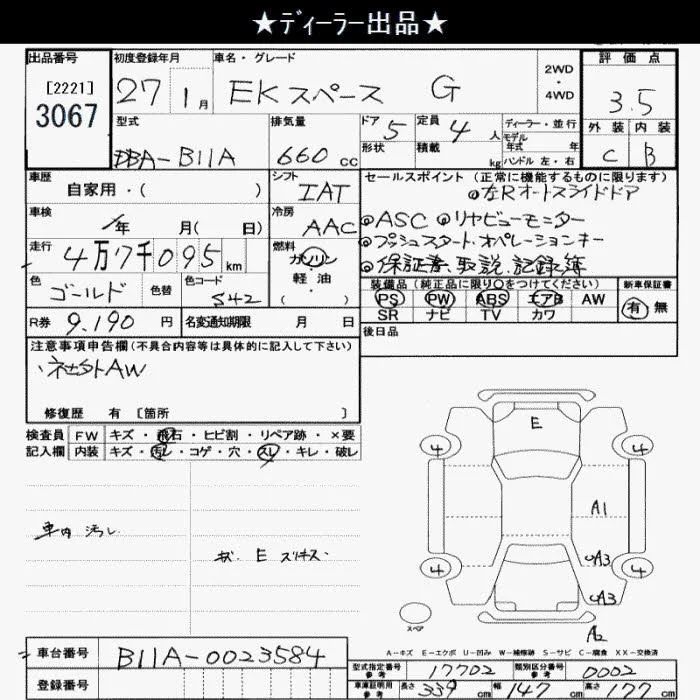 ★ディーラー出品★
出品番号 初度登録年月 車名・グレード 2WD・4WD 評価点
[2221] 3067 27 1月 EKスペース G 3.5
型式 排気量 ドア 5 定員 4人 ディーラー・並行 外装 内装
モデル年式 年
DBA-B11A 660cc 形状 積載 kg ハンドル 左・右 C B
車歴 シフト セールスポイント(正常に機能するものに限ります)
自家用・( ) IAT ◎左Rオートスライドドア
車検 年 月( 日) 冷房 AAC ◎ASC ◎リヤビューモニター
走行 4万7千095km 燃料 ガソリン ◎プッシュスタート・オペレーションキー
軽油・( ) ◎保証書、取説、記録簿
色 ゴールド 色替 色コード S42 装備品(純正品に限り○をつけてください) 新車保証書
PS PW ABS エアB AW 有 無
R券 9,190円 名変通知期限 月 日 SR ナビ TV カワ
注意事項申告欄(不具合内容等は具体的に記入して下さい) 後日品
・社外AW
修復歴 有 [箇所 ]
検査員 FW キズ・飛石・ヒビ割・リペア跡・×要
記入欄 内装 キズ・汚レ・コゲ・穴・スレ・キレ・破レ
E
4 4
A1
車内 汚レ
E
A3
4 4
A3
スペア
A2
A-キズ E-エクボ U-凹み W-補修跡 S-サビ C-腐食 XX-交換済
車台番号 B11A-0023584 型式指定番号 参考 17702 類別区分番号 参考 0002
登録番号 車庫証明用 参考 長さ 339cm 幅 147cm 高さ 177cm